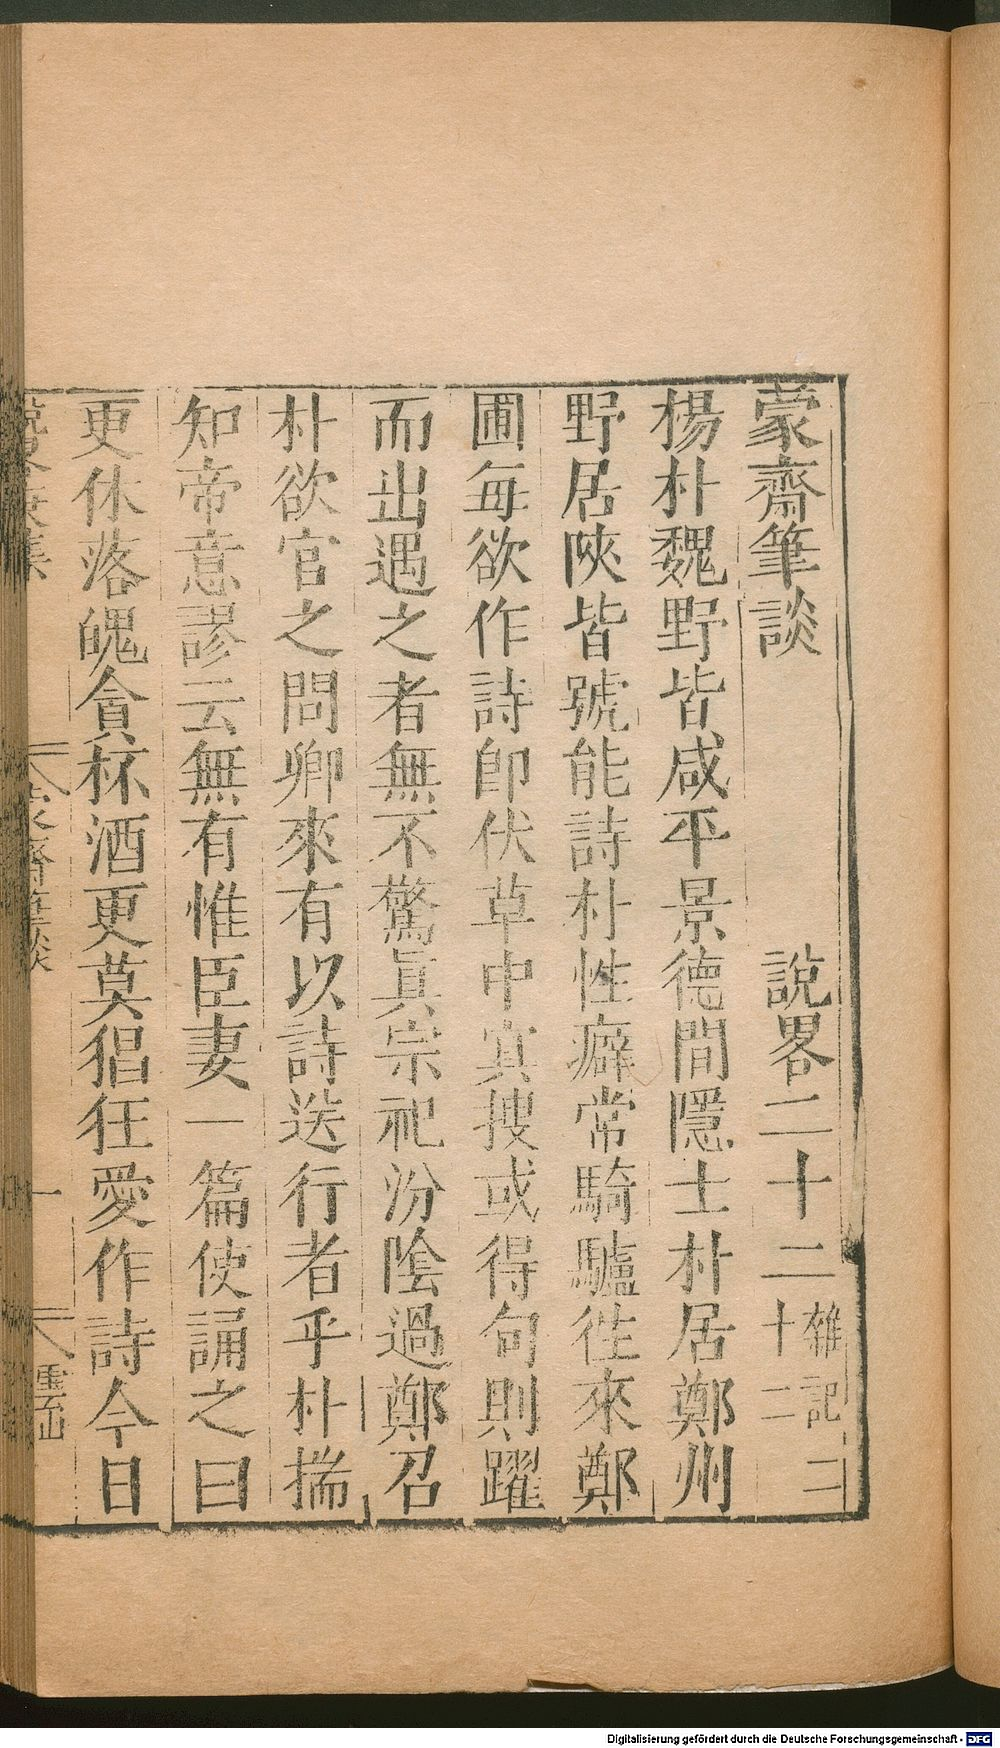 蒙齋筆談 說畧二十二 雜記二十二
楊朴魏野皆咸平景德間隱士朴居鄭州
野居陜皆號能詩朴性癖常騎驢徃來鄭
圃每欲作詩卽伏草中㝠搜或得句則躍
而出遇之者無不驚眞宗祀汾陰過鄭召
朴欲官之問卿來有以詩送行者乎朴揣
知帝意謬云無有惟臣妻一篇使誦之曰
更休落魄貪杯酒更莫猖狂愛作詩今日
蒙齋筆談 一
Digitalisierung gefördert durch die Deutsche Forschungsgemeinschaft - DFG